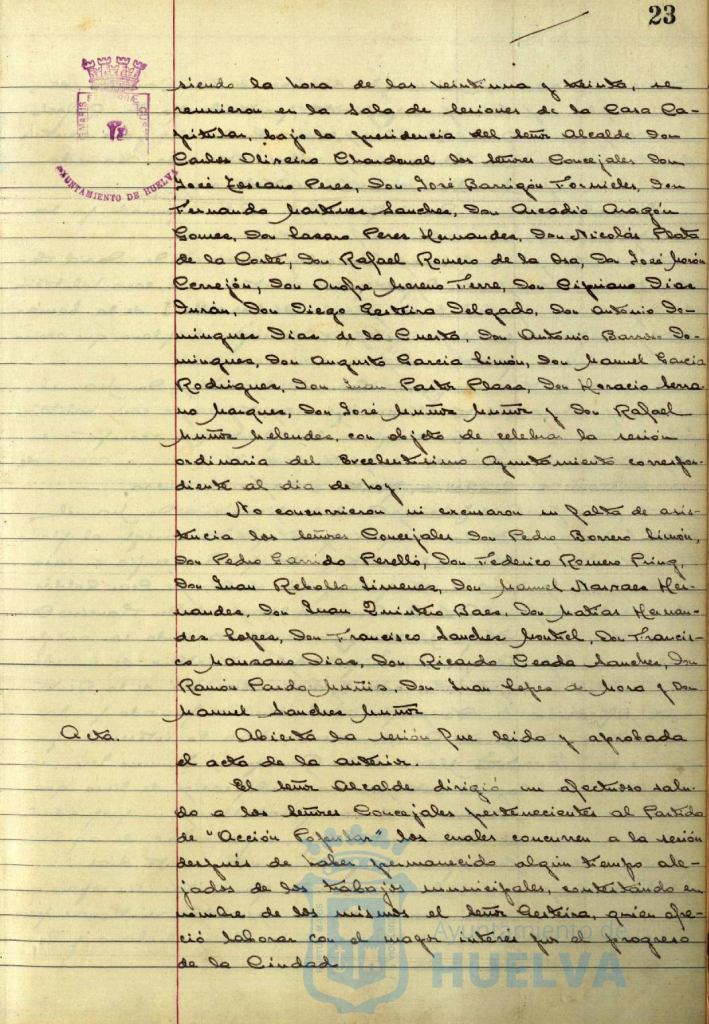 23
siendo la hora de las veintiuna y treinta, se
reunieron en la Sala de Sesiones de la Casa Ca-
pitular, bajo la presidencia del Señor Alcalde Don
Carlos Oliveira Chardenal los Señores Concejales Don
José Toscano Peres, Don José Barrigón Fornieles, Don
Fernando Martines Sanches, Don Arcadio Aragón
Gomes, Don Lasaro Peres Hernandes, Don Nicolás Plata
de la Corte, Don Rafael Romero de la Osa, Don José Morón
Cerrejón, Don Onofre Moreno Tierra, Don Cipriano Dias
Durán, Don Diego Gesteira Delgado, Don Antonio Do-
mingues Dias de la Cuesta, Don Antonio Barroso Do-
mingues, Don Augusto Garcia Simón, Don Manuel Garcia
Rodrigues, Don Juan Pastor Plasa, Don Horacio Serra-
no Marques, Don José Muñoz Muñoz y Don Rafael
Muñoz Melendes, con objeto de celebrar la sesión
ordinaria del Excelentísimo Ayuntamiento correspon-
diente al dia de hoy.
No concurrieron ni excusaron su falta de asis-
tencia los Señores Concejales Don Pedro Borrero Limón,
Don Pedro Garrido Perelló, Don Federico Romero Pring,
Don Juan Rebollo Jimenes, Don Manuel Narvaes Her-
nandes, Don Juan Quintero Baes, Don Matías Hernan-
dez Lopes, Don Francisco Sanches Montiel, Don Francis-
co Manzano Dias, Don Ricardo Ceada Sanches, Don
Ramón Pardo Muñis, Don Juan Lopes de Mora y Don
Manuel Sanches Muñoz
Acta. Abierta la sesión fue leida y aprobada
el acta de la anterior.
El Señor Alcalde dirigió un afectuoso salu-
do a los Señores Concejales pertenecientes al Partido
de "Acción Popular" los cuales concurren a la sesión
después de haber permanecido algún tiempo ale-
jados de los trabajos municipales, contestando en
nombre de los mismos el Señor Gesteira, quien ofre-
ció laborar con el mayor interés por el progreso
de la Ciudad.
AYUNTAMIENTO DE HUELVA
Ayuntamiento de
HUELVA